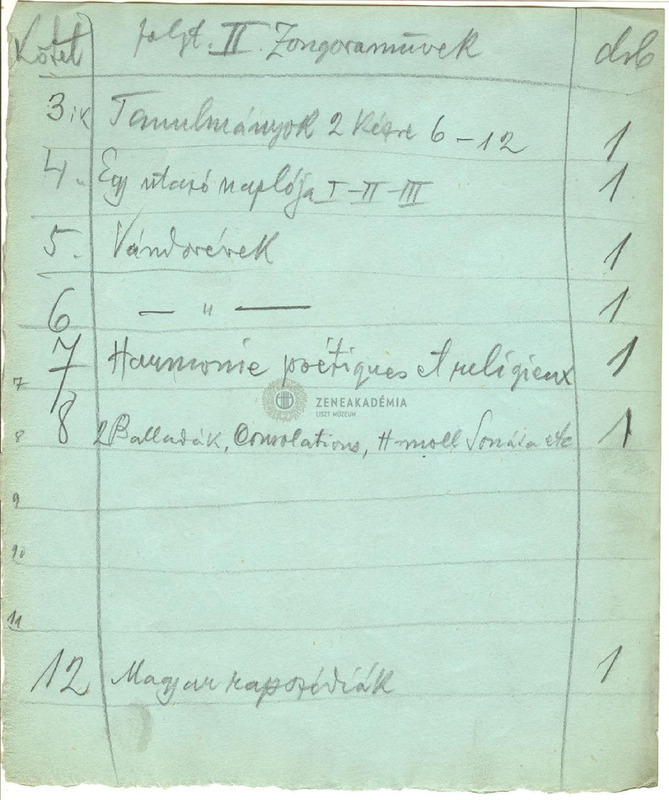 Kötet folyt. II. Zongoraművek drb
3ik Tanulmányok 2 kézre 6–12 1
4. Egy utazó naplója I–II–III 1
5. Vándorévek 1
6 — " — 1
7 Harmonie poétiques et religieux 1
7
ZENEAKADÉMIA
LISZT MÚZEUM
8 8 2 Balladák, Consolations, H-moll Sonáta etc 1
9
10
11
12 Magyar rapszódiák 1